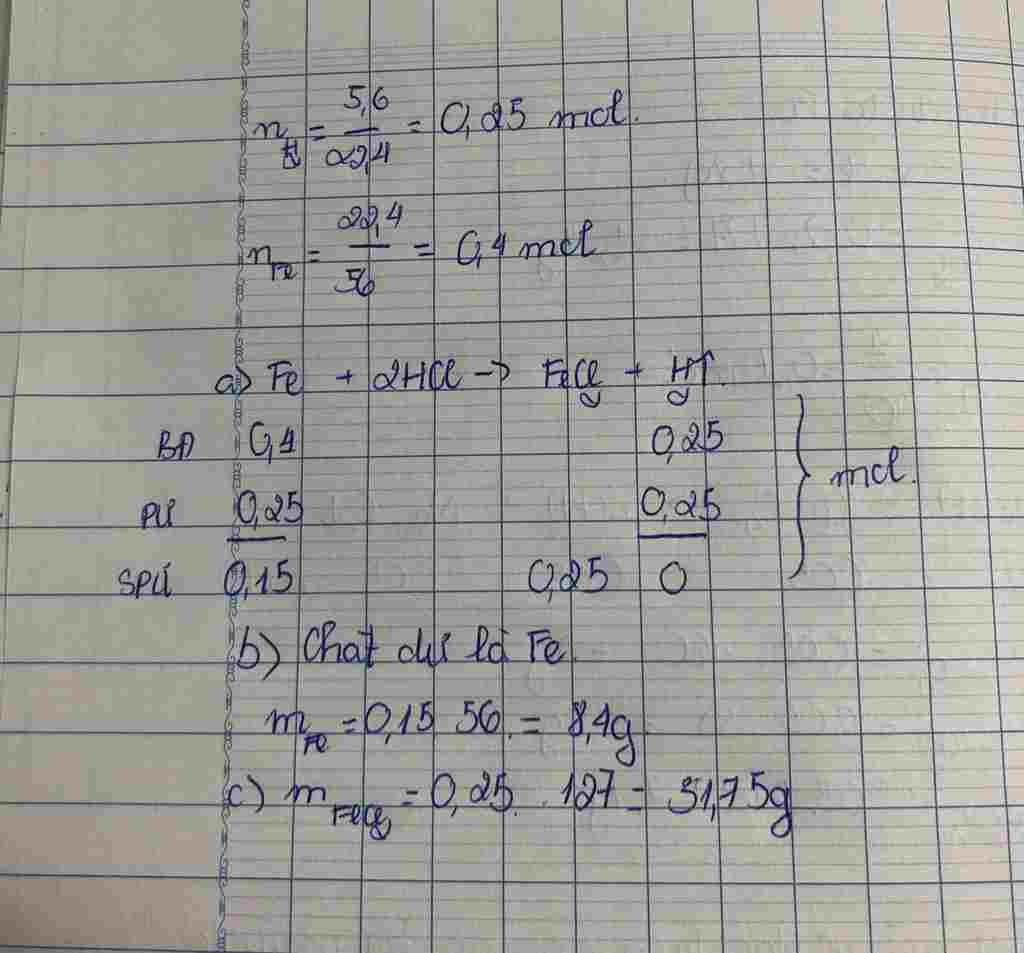 n_H₂ = 5,6 / 22,4 = 0,25 mol.
n_Fe = 22,4 / 56 = 0,4 mol
a) Fe + 2HCl -> FeCl₂ + H₂↑.
BĐ 0,4 0,25
PƯ 0,25 0,25 } mol.
SPƯ 0,15 0,25 0
b) Chất dư là Fe
m_Fe = 0,15 56. = 8,4g
c) m_FeCl₂ = 0,25 . 127 = 31,75g